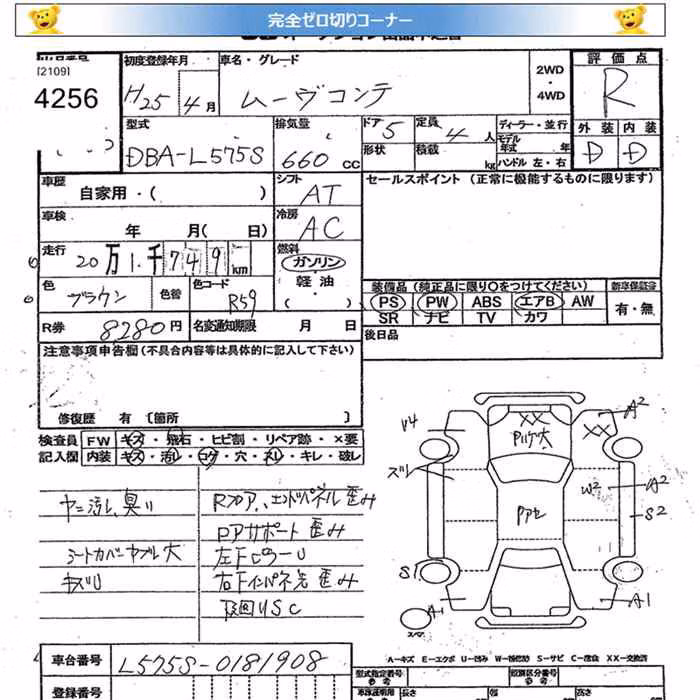 完全ゼロ切りコーナー
[2109]
4256
初度登録年月
H25 4月
車名・グレード
ムーヴコンテ
2WD
・
4WD
評価点
R
型式
DBA-L575S
排気量
660 CC
ドア 5
形状
定員 4人
積載 kg
ディーラー・並行
モデル年式 年
ハンドル 左・右
外装 内装
D D
車歴
自家用・( )
シフト
AT
セールスポイント (正常に機能するものに限ります)
車検
年 月( 日)
冷房
AC
走行
20万1千749km
燃料
ガソリン
軽油
・( )
色
ブラウン
色替
色コード
R59
装備品(純正品に限り○をつけてください)
PS PW ABS エアB AW
SR ナビ TV カワ
新車保証書
有・無
R券 8280円
名変通知期限 月 日
後日品
注意事項申告欄(不具合内容等は具体的に記入して下さい)
修復歴 有〔箇所 〕
検査員 FW キズ・飛石・ヒビ割・リペア跡・×要
記入欄 内装 キズ・汚レ・コゲ・穴・スレ・キレ・破レ
ヤニ汚レ、臭い
シートカバーヤブレ大
キズU
Rフロア、エンドパネル歪み
ロアサポート歪み
左下ピラーU
右下インパネ先歪み
下回りSC
V4
ズレ
S1
A1
XX
Pハゲ大
Pアセ
A2
XX
W2
A2
S2
A1
スペア
A-キズ E-エクボ U-凹み W-補修跡 S-サビ C-腐食 XX-交換済
車台番号 L575S-0181908
登録番号
型式指定番号
参考
類別区分番号
参考
車庫証明用
参考
長さ
幅
高さ